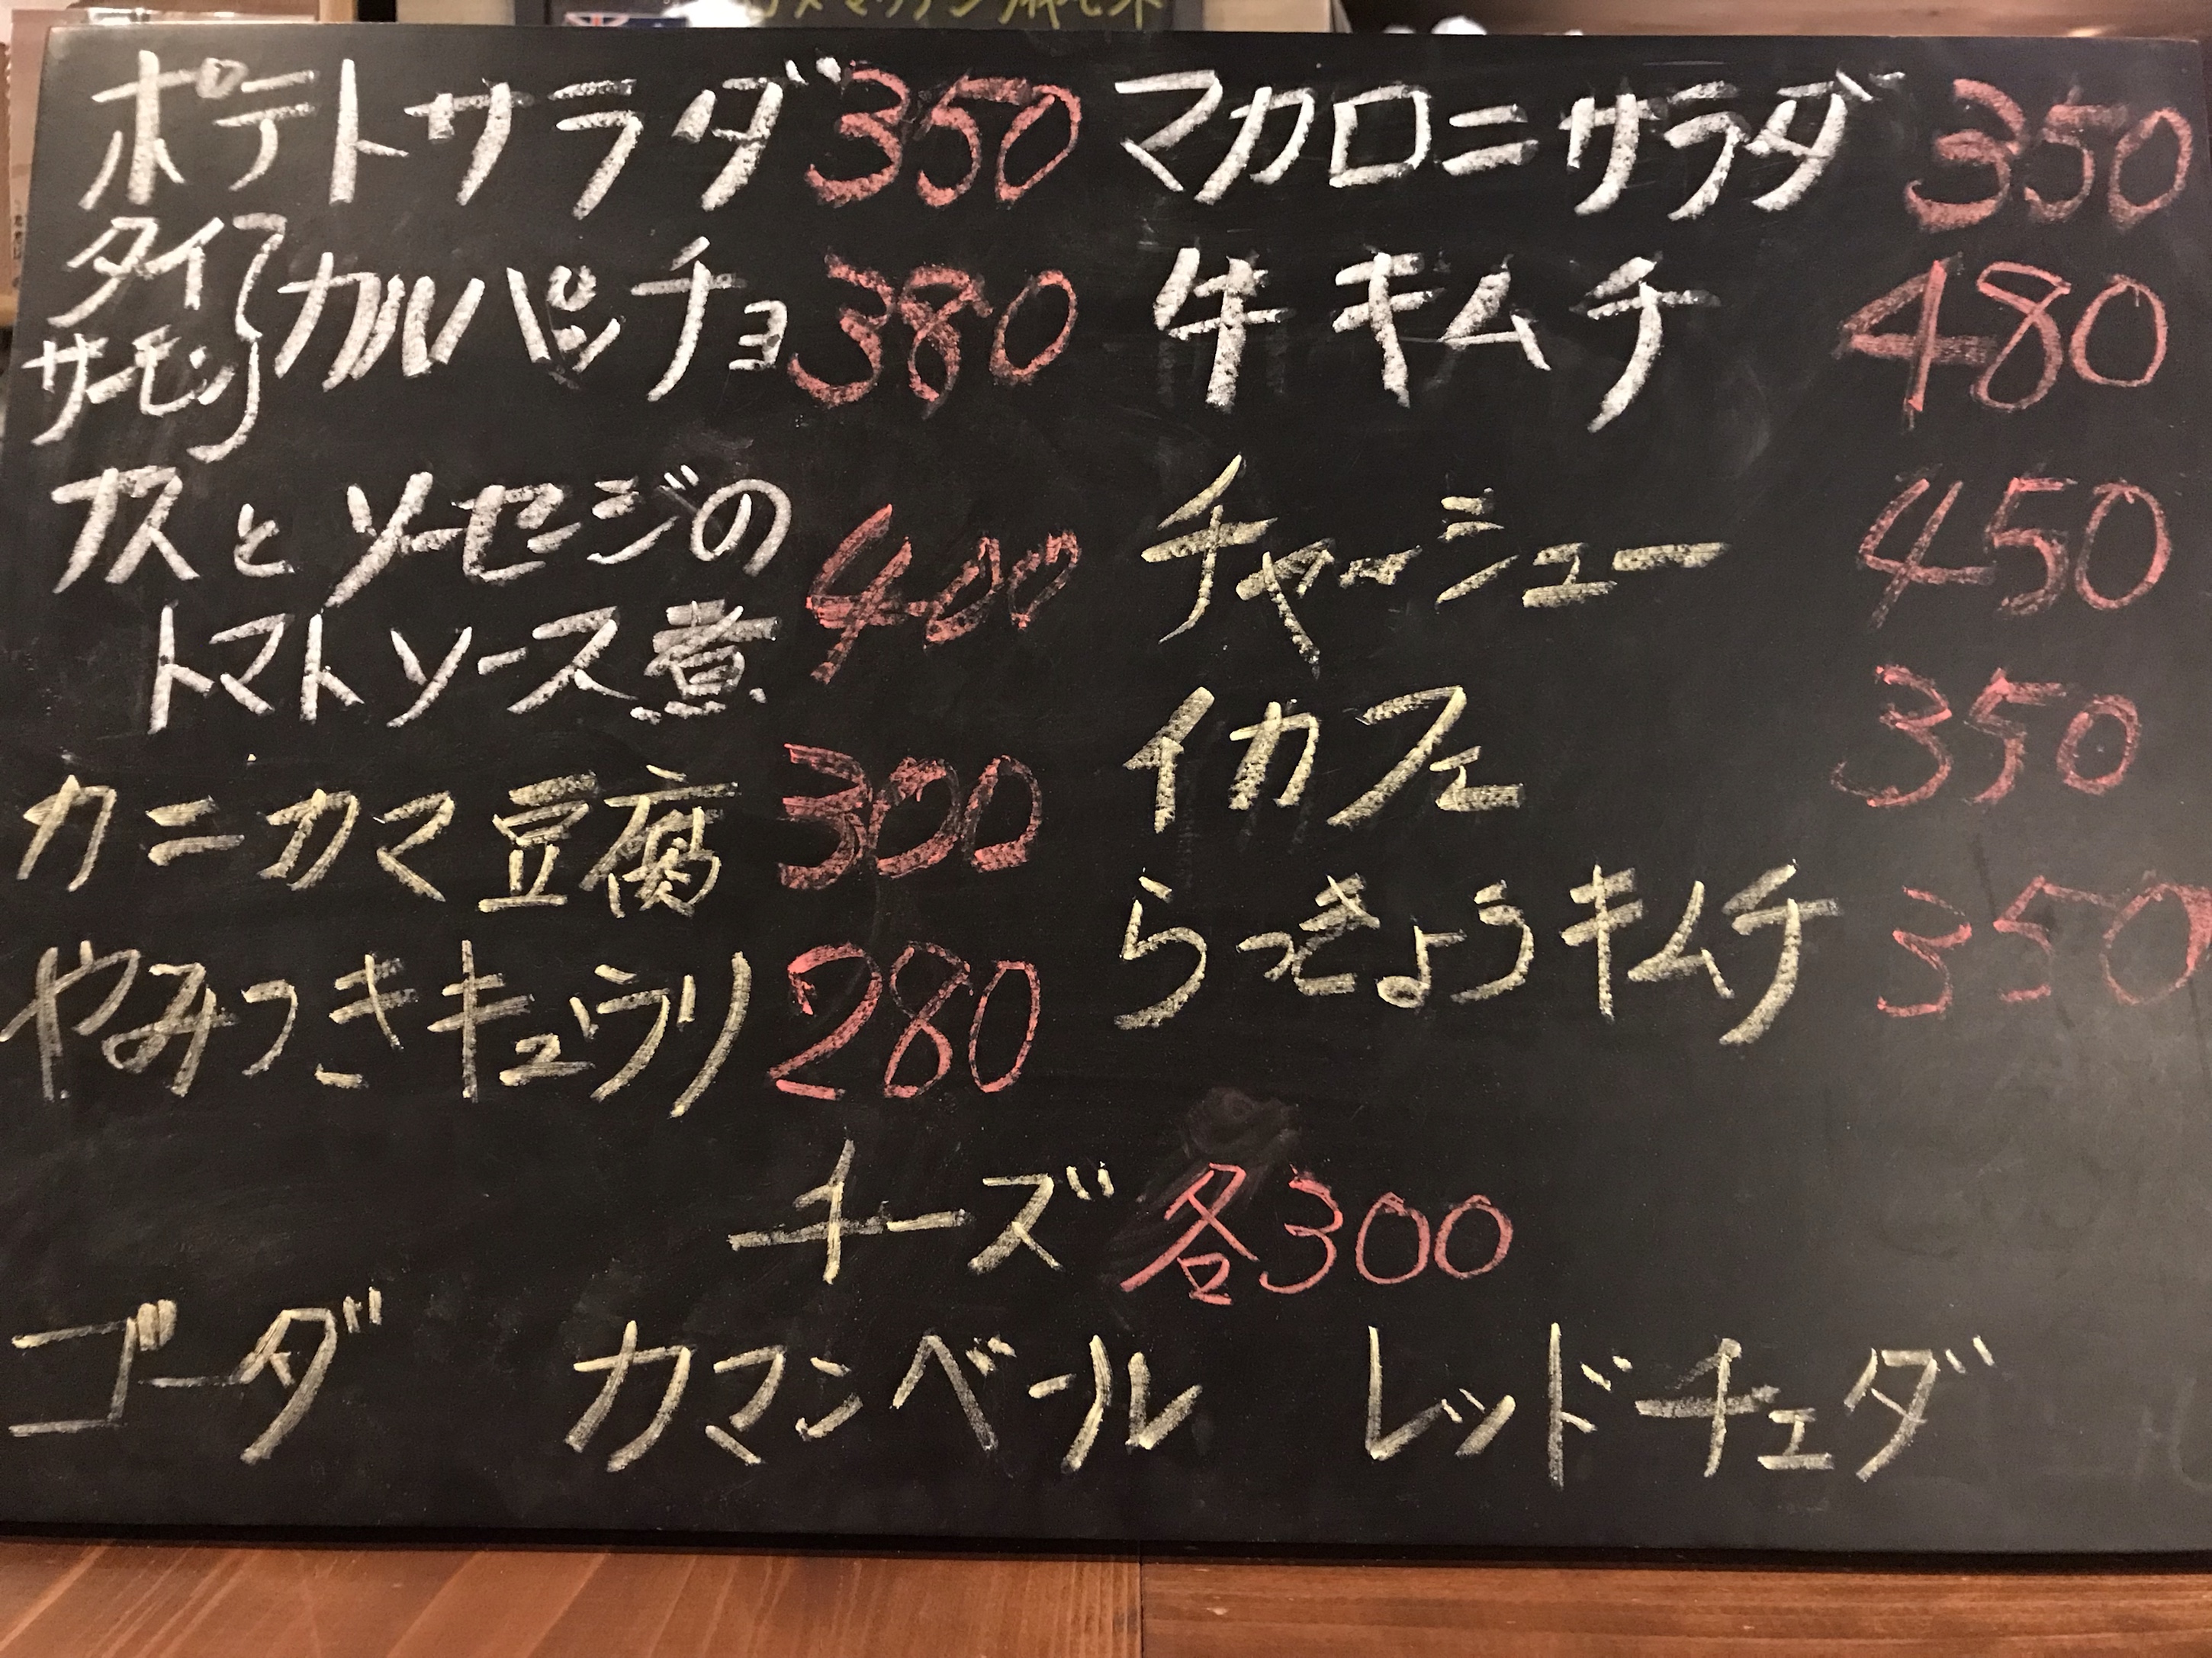 ポテトサラダ 350
タイ
サーモン
カルパッチョ 380
ナスとソーセージの
トマトソース煮 400
カニカマ豆腐 300
やみつきキュウリ 280
マカロニサラダ 350
牛キムチ 480
チャーシュー 450
イカフェ 350
らっきょうキムチ 350
チーズ 各300
ゴーダ カマンベール レッドチェダ